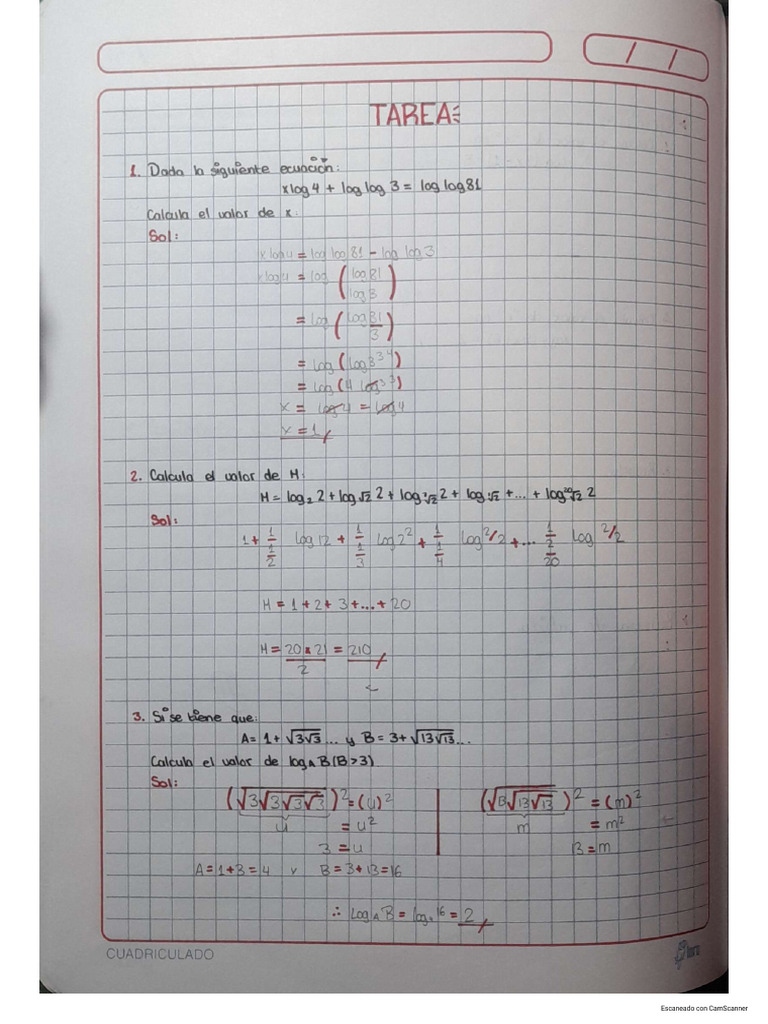 TAREA
1. Dada la siguiente ecuación:
x log 4 + log log 3 = log log 81
Calcula el valor de x.
Sol:
x log 4 = log log 81 - log log 3
x log 4 = log (log 81 / log 3)
= log (log 81 / 3)
= log (log 3 3 4)
= log (4 log 3 3)
x = log 4 = log 4
x = 1
2. Calcula el valor de H:
H = log₂ 2 + log√2 2 + log³√2 2 + log⁴√2 + ... + log²⁰√2 2
Sol:
1 + 1/(1/2) log 12 + 1/(1/3) log 2² + 1/(1/4) log 2/2 + ... 1/2/20 log 2/2
H = 1 + 2 + 3 + ... + 20
H = 20 x 21 / 2 = 210
3. Si se tiene que:
A = 1 + √3√3 ... y B = 3 + √13√13 ...
Calcula el valor de log_A B (B > 3)
Sol:
(√3√3√3√3)² = (u)²
u = u²
3 = u
(√13√13√13)² = (m)²
m = m²
13 = m
A = 1 + 3 = 4 y B = 3 + 13 = 16
∴ Log_A B = log₄ 16 = 2
CUADRICULADO
Escaneado con CamScanner